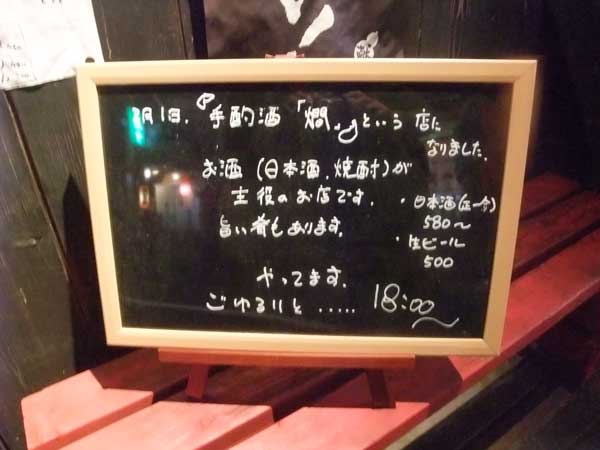 2月1日.『手酌酒「燗」』という店に
なりました.
お酒(日本酒.焼酎)が
主役のお店です.
旨い肴もあります.
・日本酒(正一合)
580〜
・生ビール
500
やってます.
ごゆるりと.....
18:00〜